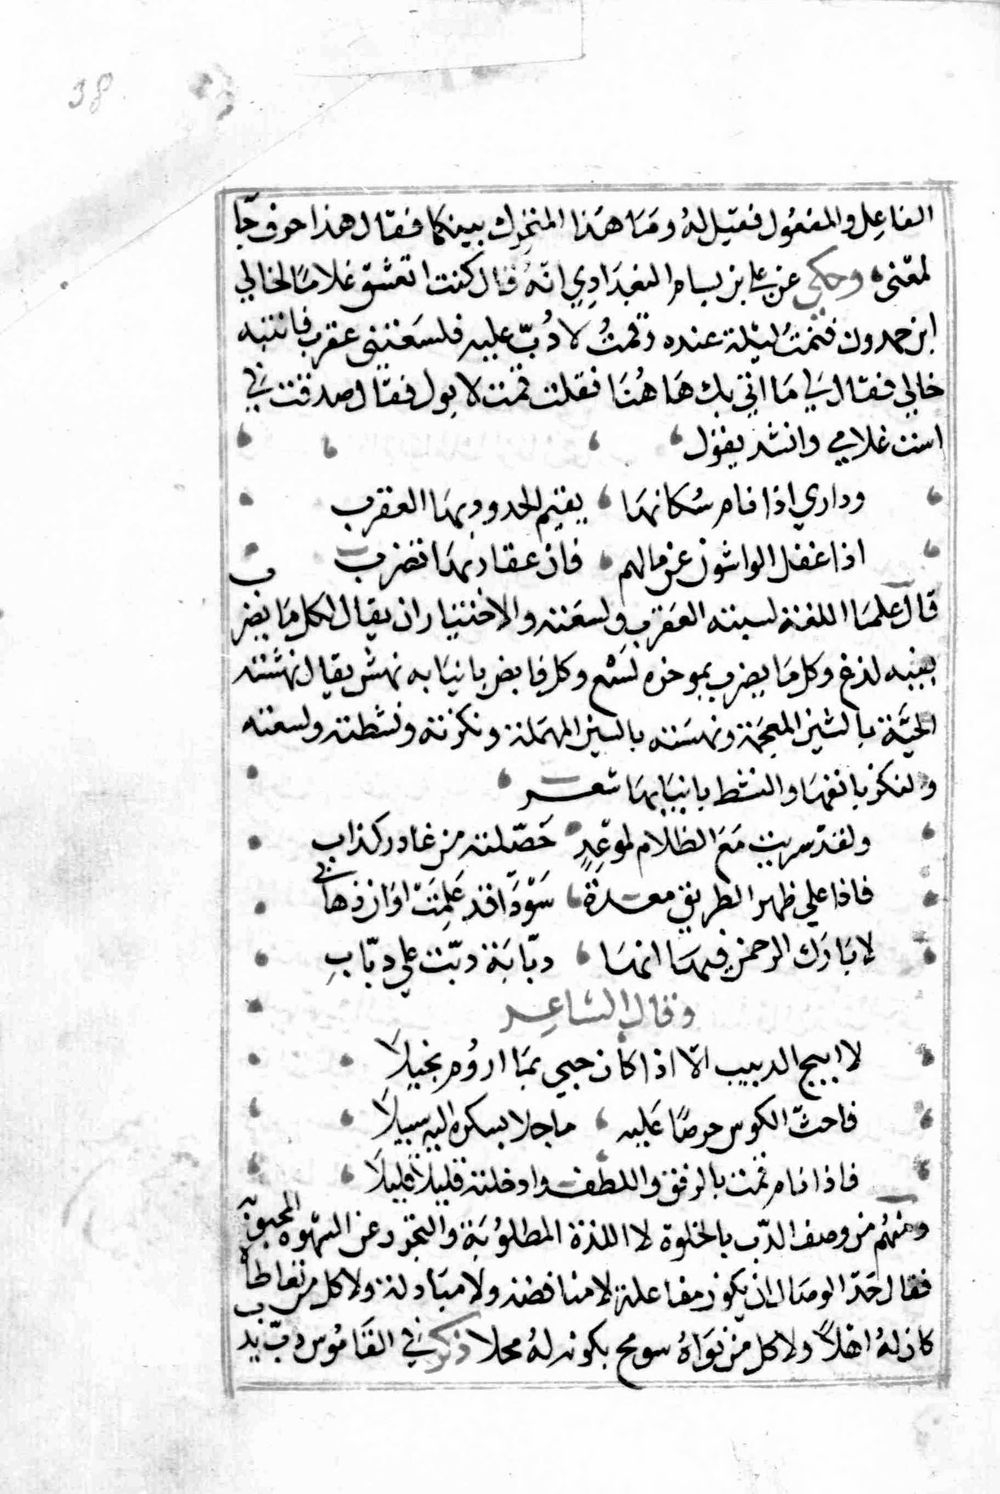 38
الفاعل والمفعول فقيل له وما هذا المتحرك بينكما فقال هذا حرف جا
لمعنى وحكي عن علي بن بسام البغدادي انه قال كنت اتعشق غلاما لخالي
ابن حمدون فنمت ليلة عنده وقمت لادب عليه فلسعتني عقرب فانتبه
خالي فقال لي ما اتي بك هاهنا فقلت قمت لابول فقال صدقت في
است غلامي وانشد يقول
وداري اذا نام سكانها يقيم الحدود بها العقرب
اذا غفل الواشون عن مالهم فان عقاربها تضرب
قال علما اللغة لسبته العقرب ولسعته والاختيار ان يقال لكل ما يضرب
بفيه لدغ وكل ما يضرب بموخره لسع وكل ما يضر بانيابه نهش يقال نهشته
الحية بالشين المعجمة ونهسته بالسين المهملة ونكزته ونشطته ولسعته
والنكز بانفها والنشط بانيابها شعر
ولقد سريت مع الظلام لموعد حصلته من غادر كذاب
فاذا علي ظهر الطريق معدة سودا قد علمت اوان ذهابي
لا بارك الرحمن فيها انها دبابة دبت علي دباب
وقال الشاعر
لا ابيح الدبيب الا اذا كان حبي بما اروم بخيلا
فاحث الكوس حرصا عليه ماجلا بسكره اليه سبيلا
فاذا نام قمت بالرفق واللطف وادخلته قليلا قليلا
ومنهم من وصف الدب بالخلوة لا اللذة المطلوبة والتجرد عن الشهوة المحبوبة
فقال حد الوصال ان يكون مفاعلة لا مناقضة ولا مبادلة ولا كل من تعاطاه
كان له اهلا ولا كل من نواه سومح بكونه له محلا ذكر في القاموس دب يدب